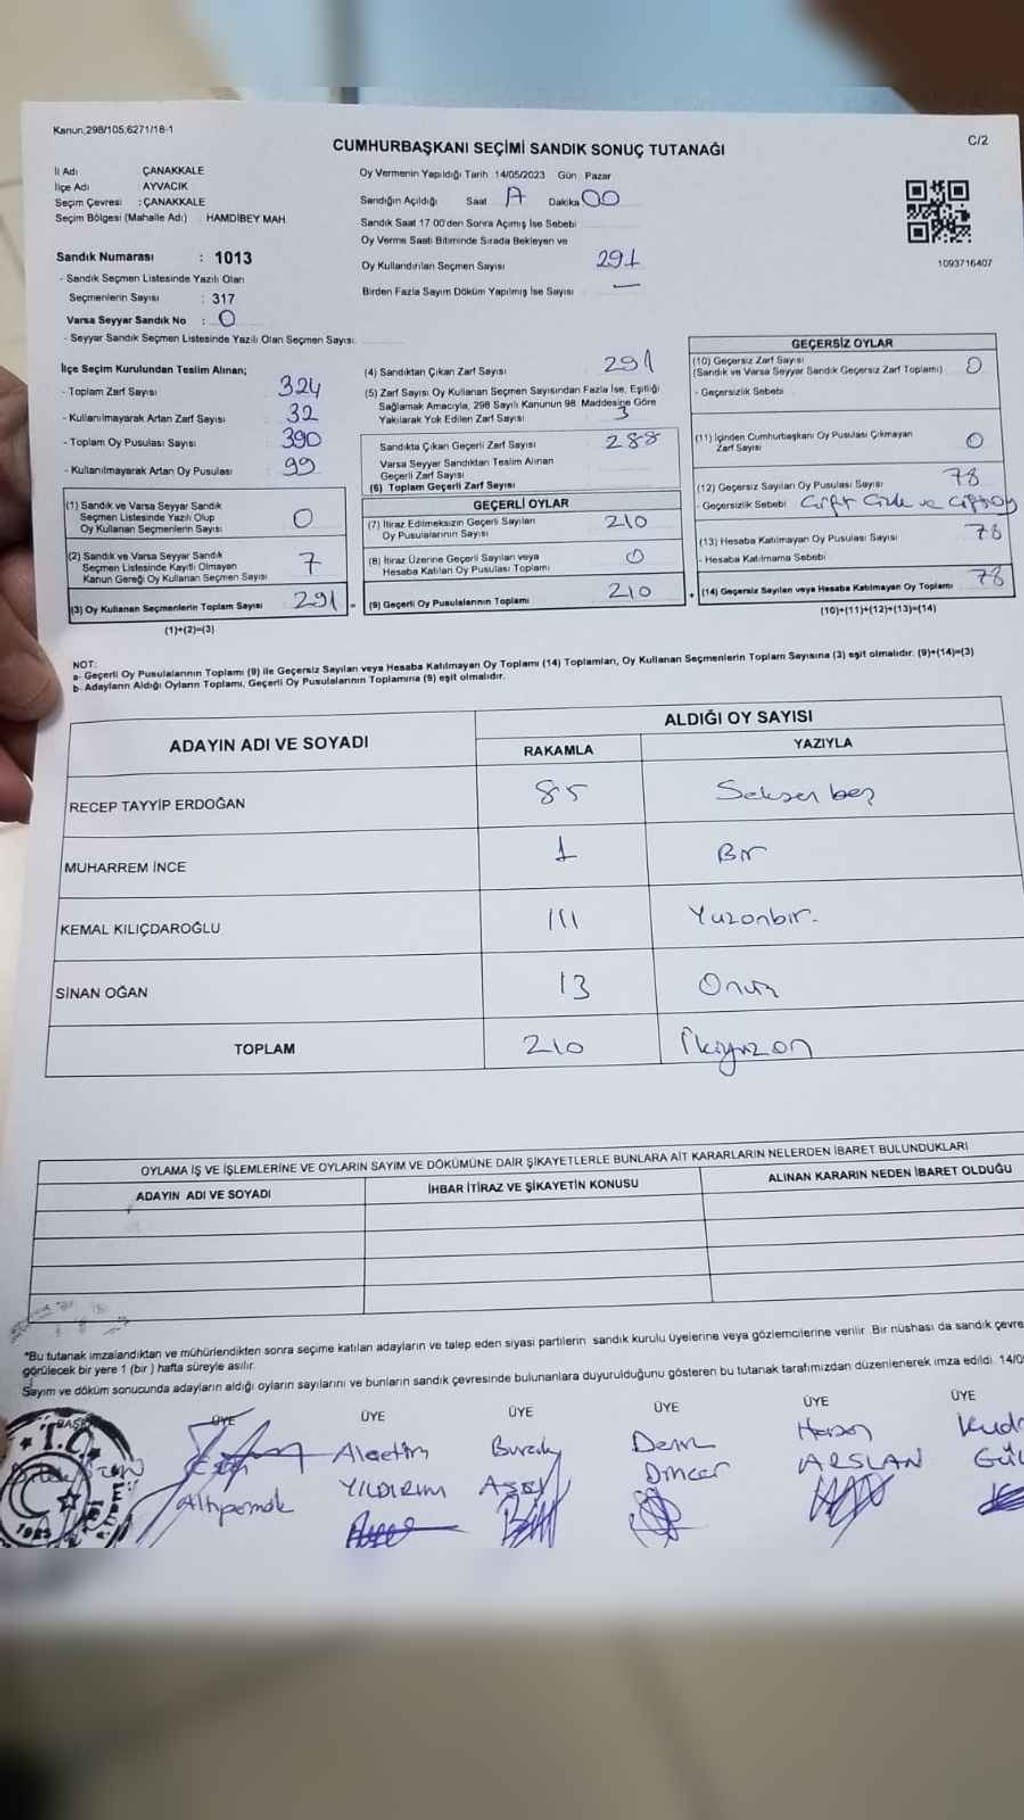 Kanun;298/105,6271/18-1
C/2
CUMHURBAŞKANI SEÇİMİ SANDIK SONUÇ TUTANAĞI
İl Adı ÇANAKKALE
İlçe Adı AYVACIK
Seçim Çevresi : ÇANAKKALE
Seçim Bölgesi (Mahalle Adı) HAMDİBEY MAH.
Sandık Numarası : 1013
- Sandık Seçmen Listesinde Yazılı Olan
Seçmenlerin Sayısı : 317
Varsa Seyyar Sandık No : 0
- Seyyar Sandık Seçmen Listesinde Yazılı Olan Seçmen Sayısı:
Oy Vermenin Yapıldığı Tarih 14/05/2023 Gün Pazar
Sandığın Açıldığı Saat A Dakika 00
Sandık Saat 17 00'den Sonra Açımış İse Sebebi
Oy Verme Saati Bitiminde Sırada Bekleyen ve
Oy Kullandırılan Seçmen Sayısı 291
Birden Fazla Sayım Döküm Yapılmış İse Sayısı —
1093716407
İlçe Seçim Kurulundan Teslim Alınan;
- Toplam Zarf Sayısı 324
- Kullanılmayarak Artan Zarf Sayısı 32
- Toplam Oy Pusulası Sayısı 390
- Kullanılmayarak Artan Oy Pusulası 99
(1) Sandık ve Varsa Seyyar Sandık
Seçmen Listesinde Yazılı Olup
Oy Kullanan Seçmenlerin Sayısı 0
(2) Sandık ve Varsa Seyyar Sandık
Seçmen Listesinde Kayıtlı Olmayan
Kanun Gereği Oy Kullanan Seçmen Sayısı 7
(3) Oy Kullanan Seçmenlerin Toplam Sayısı 291
(1)+(2)=(3)
(4) Sandıktan Çıkan Zarf Sayısı 291
(5) Zarf Sayısı Oy Kullanan Seçmen Sayısından Fazla İse, Eşitliği
Sağlamak Amacıyla, 298 Sayılı Kanunun 98. Maddesine Göre
Yakılarak Yok Edilen Zarf Sayısı 3
Sandıkta Çıkan Geçerli Zarf Sayısı 288
Varsa Seyyar Sandıktan Teslim Alınan
Geçerli Zarf Sayısı
(6) Toplam Geçerli Zarf Sayısı
GEÇERLİ OYLAR
(7) İtiraz Edilmeksizin Geçerli Sayılan
Oy Pusulalarının Sayısı 210
(8) İtiraz Üzerine Geçerli Sayılan veya
Hesaba Katılan Oy Pusulası Toplamı 0
= (9) Geçerli Oy Pusulalarının Toplamı 210
GEÇERSİZ OYLAR
(10) Geçersiz Zarf Sayısı
(Sandık ve Varsa Seyyar Sandık Geçersiz Zarf Toplamı) 0
- Geçersizlik Sebebi
(11) İçinden Cumhurbaşkanı Oy Pusulası Çıkmayan
Zarf Sayısı 0
(12) Geçersiz Sayılan Oy Pusulası Sayısı 78
- Geçersizlik Sebebi Çift ve Çift oy
(13) Hesaba Katılmayan Oy Pusulası Sayısı 78
- Hesaba Katılmama Sebebi
+ (14) Geçersiz Sayılan veya Hesaba Katılmayan Oy Toplamı 78
(10)+(11)+(12)+(13)=(14)
NOT:
a- Geçerli Oy Pusulalarının Toplamı (9) ile Geçersiz Sayılan veya Hesaba Katılmayan Oy Toplamı (14) Toplamları, Oy Kullanan Seçmenlerin Toplam Sayısına (3) eşit olmalıdır. (9)+(14)=(3)
b- Adayların Aldığı Oyların Toplamı, Geçerli Oy Pusulalarının Toplamına (9) eşit olmalıdır.
ADAYIN ADI VE SOYADI
ALDIĞI OY SAYISI
RAKAMLA YAZIYLA
RECEP TAYYİP ERDOĞAN 85 Seksen beş
MUHARREM İNCE 1 Bir
KEMAL KILIÇDAROĞLU 111 Yüzonbir.
SİNAN OĞAN 13 Onüç
TOPLAM 210 İkiyüzon
OYLAMA İŞ VE İŞLEMLERİNE VE OYLARIN SAYIM VE DÖKÜMÜNE DAİR ŞİKAYETLERLE BUNLARA AİT KARARLARIN NELERDEN İBARET BULUNDUKLARI
ADAYIN ADI VE SOYADI İHBAR İTİRAZ VE ŞİKAYETİN KONUSU ALINAN KARARIN NEDEN İBARET OLDUĞU
*Bu tutanak imzalandıktan ve mühürlendikten sonra seçime katılan adayların ve talep eden siyasi partilerin sandık kurulu üyelerine veya gözlemcilerine verilir. Bir nüshası da sandık çevre
görülecek bir yere 1 (bir) hafta süreyle asılır.
Sayım ve döküm sonucunda adayların aldığı oyların sayılarını ve bunların sandık çevresinde bulunanlara duyurulduğunu gösteren bu tutanak tarafımızdan düzenlenerek imza edildi. 14/0
BAŞK ÜYE ÜYE ÜYE ÜYE ÜYE ÜYE
T.C.
Altıparmak
Alaettin YILDIRIM
Burak
Deniz Dinçer
Hasan ARSLAN